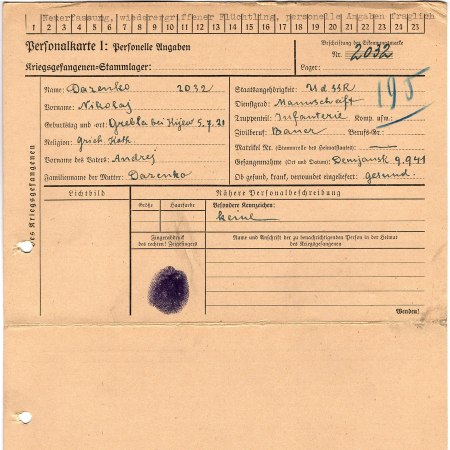 Neuerfassung, wiederergriffener Flüchtling, personelle Angaben fraglich
1 2 3 4 5 6 7 8 9 10 11 12 13 14 15 16 17 18 19 20 21 22 23 24 25
Personalkarte I: Personelle Angaben
Kriegsgefangenen-Stammlager:
Beschriftung der Erkennungsmarke
Nr. 2032
Lager:
195
Name: Dazenko 2032
Vorname: Nikolaj
Geburtstag und -ort: Grebla bei Kijew 5.7.21
Religion: Griech. Kath.
Vorname des Vaters: Andrej
Familienname der Mutter: Dazenko
Staatsangehörigkeit: UdSSR
Dienstgrad: Mannschaft
Truppenteil: Infanterie Komp. usw.:
Zivilberuf: Bauer Berufs-Gr.:
Matrikel Nr. (Stammrolle des Heimatstaates): —
Gefangennahme (Ort und Datum): Demjansk 9.9.41
Ob gesund, krank, verwundet eingeliefert: gesund.
des Kriegsgefangenen
Lichtbild
Nähere Personalbeschreibung
Größe
Haarfarbe
Besondere Kennzeichen:
keine
Fingerabdruck
des rechten! Zeigefingers
Name und Anschrift der zu benachrichtigenden Person in der Heimat
des Kriegsgefangenen
Wenden!